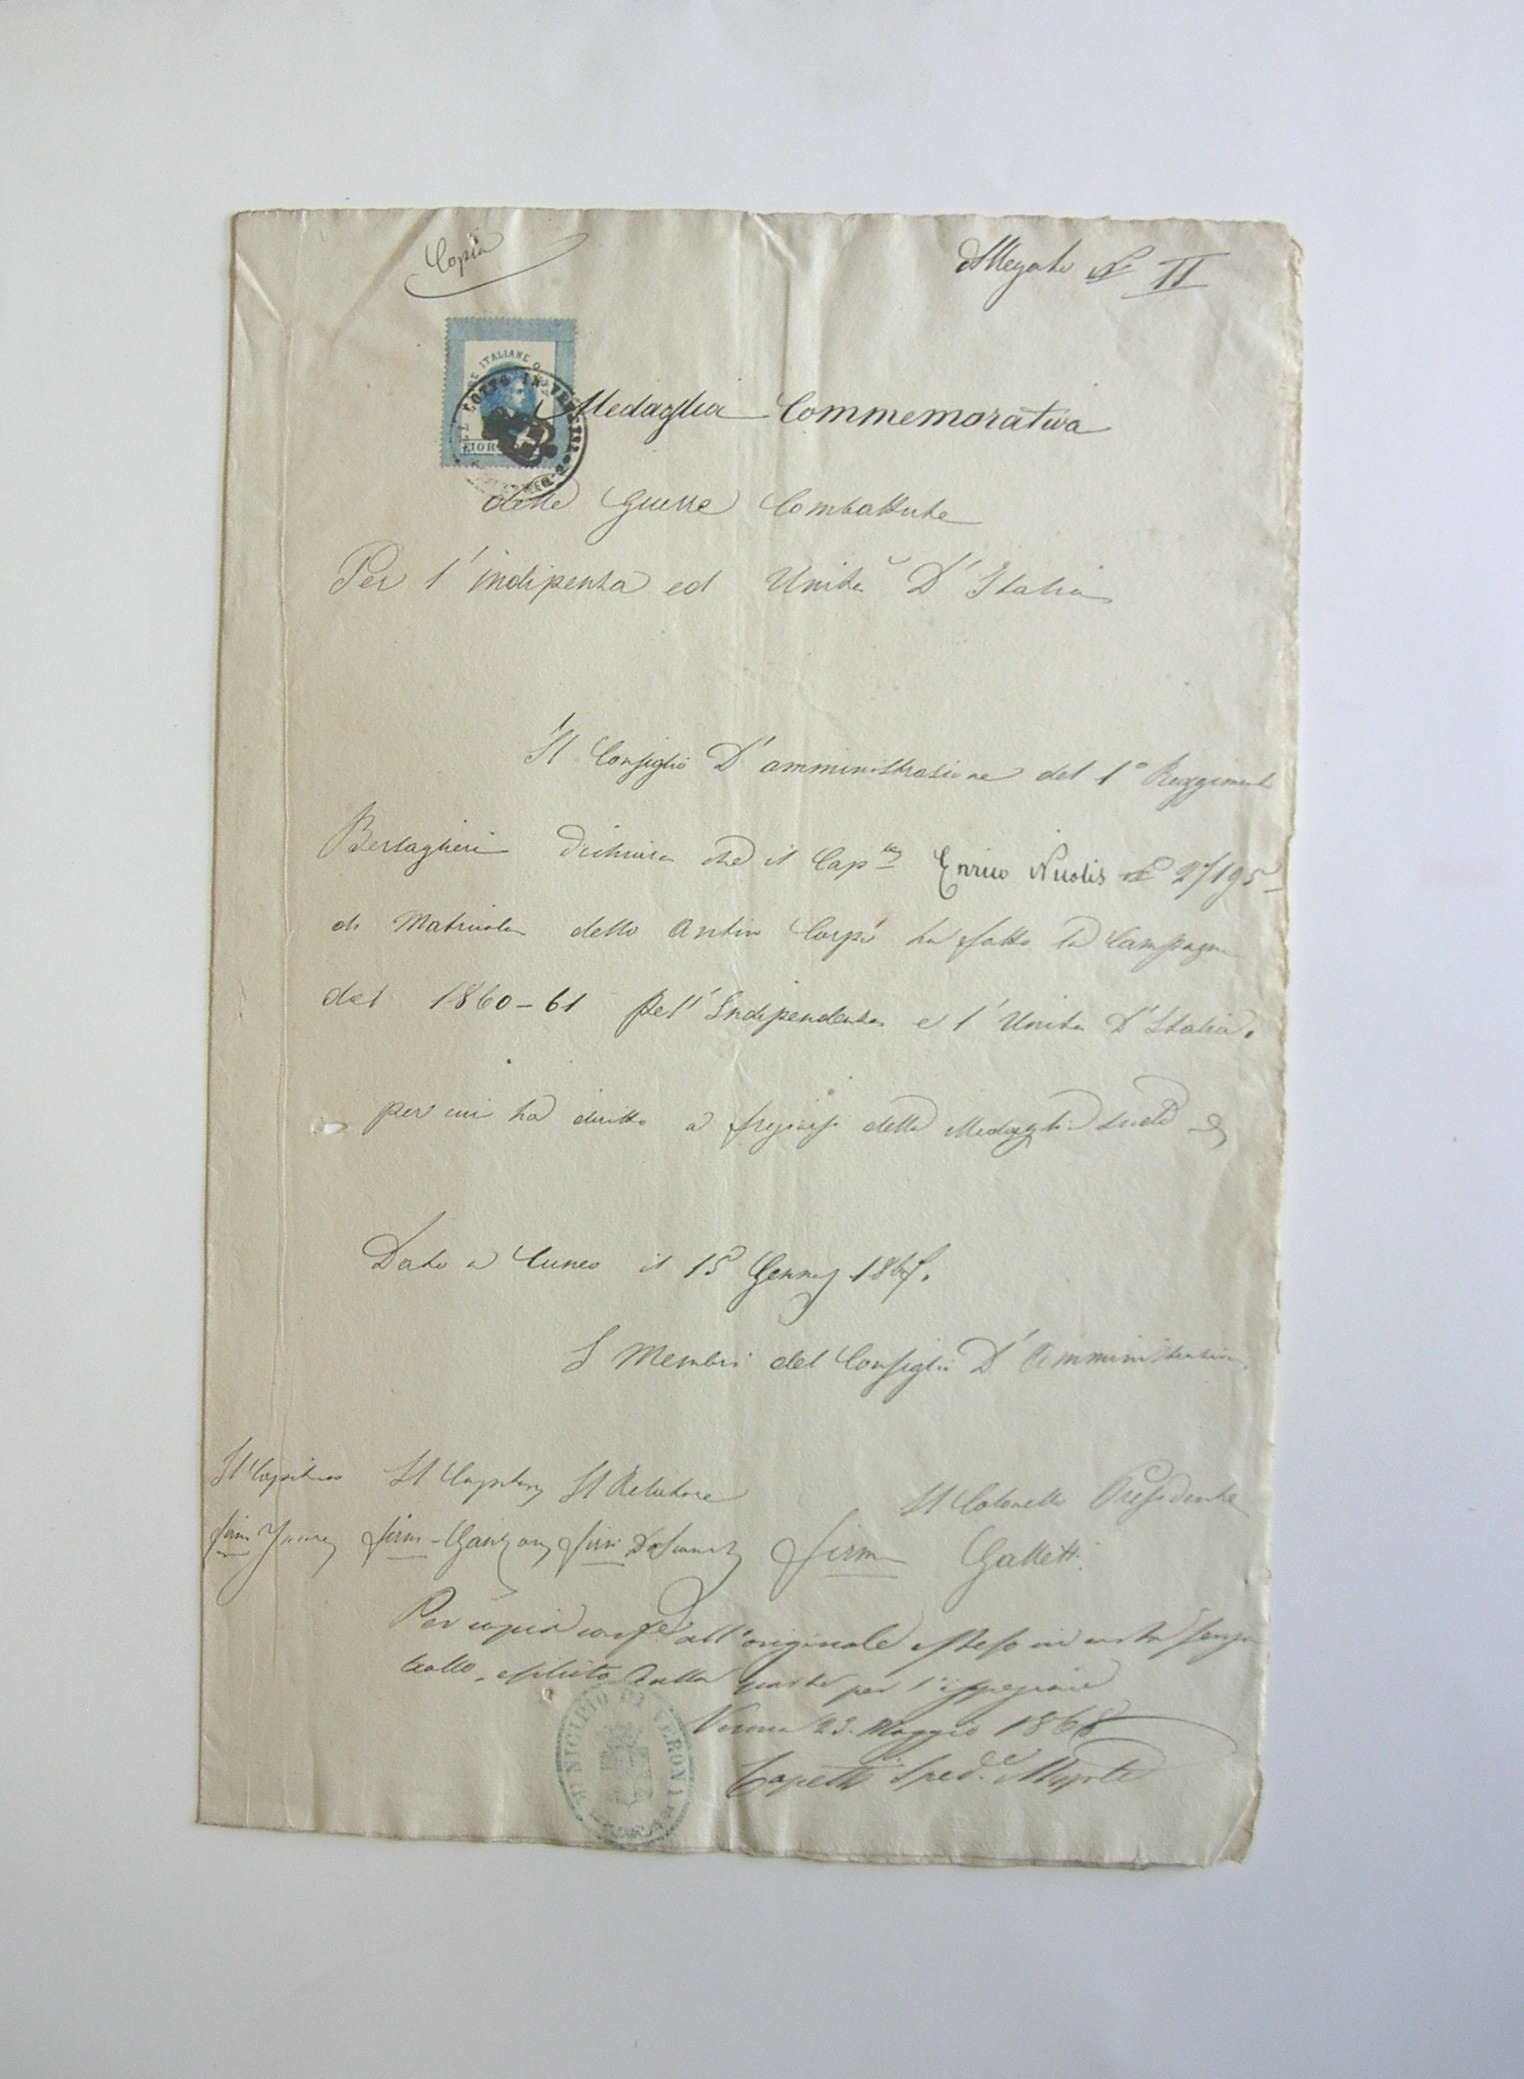 Copia
Allegato N° II
Medaglia Commemorativa
delle Guerre Combattute
Per l'indipenza ed Unità D'Italia
Il Consiglio D'amministrazione del 1° Reggimento
Bersaglieri dichiara che il Cap Enrico Nicolis N°
di Matricola dello Corpo ha fatto la Campagna
del 1860-61 Pell'Indipendenza e l'Unità D'Italia.
per cui ha diritto a fregiarsi della Medaglia
Dato a Cuneo il 15 1867.
I Membri del Consiglio D'Amministrazione
Il Capitano Il Capitano Il Relatore Il Colonnello Presidente
firm firm firm firm Galletti
Per copia all'originale esteso in carta senza
bollo dalla parte per
Verona 23 Maggio 1868
MUNICIPIO DI VERONA